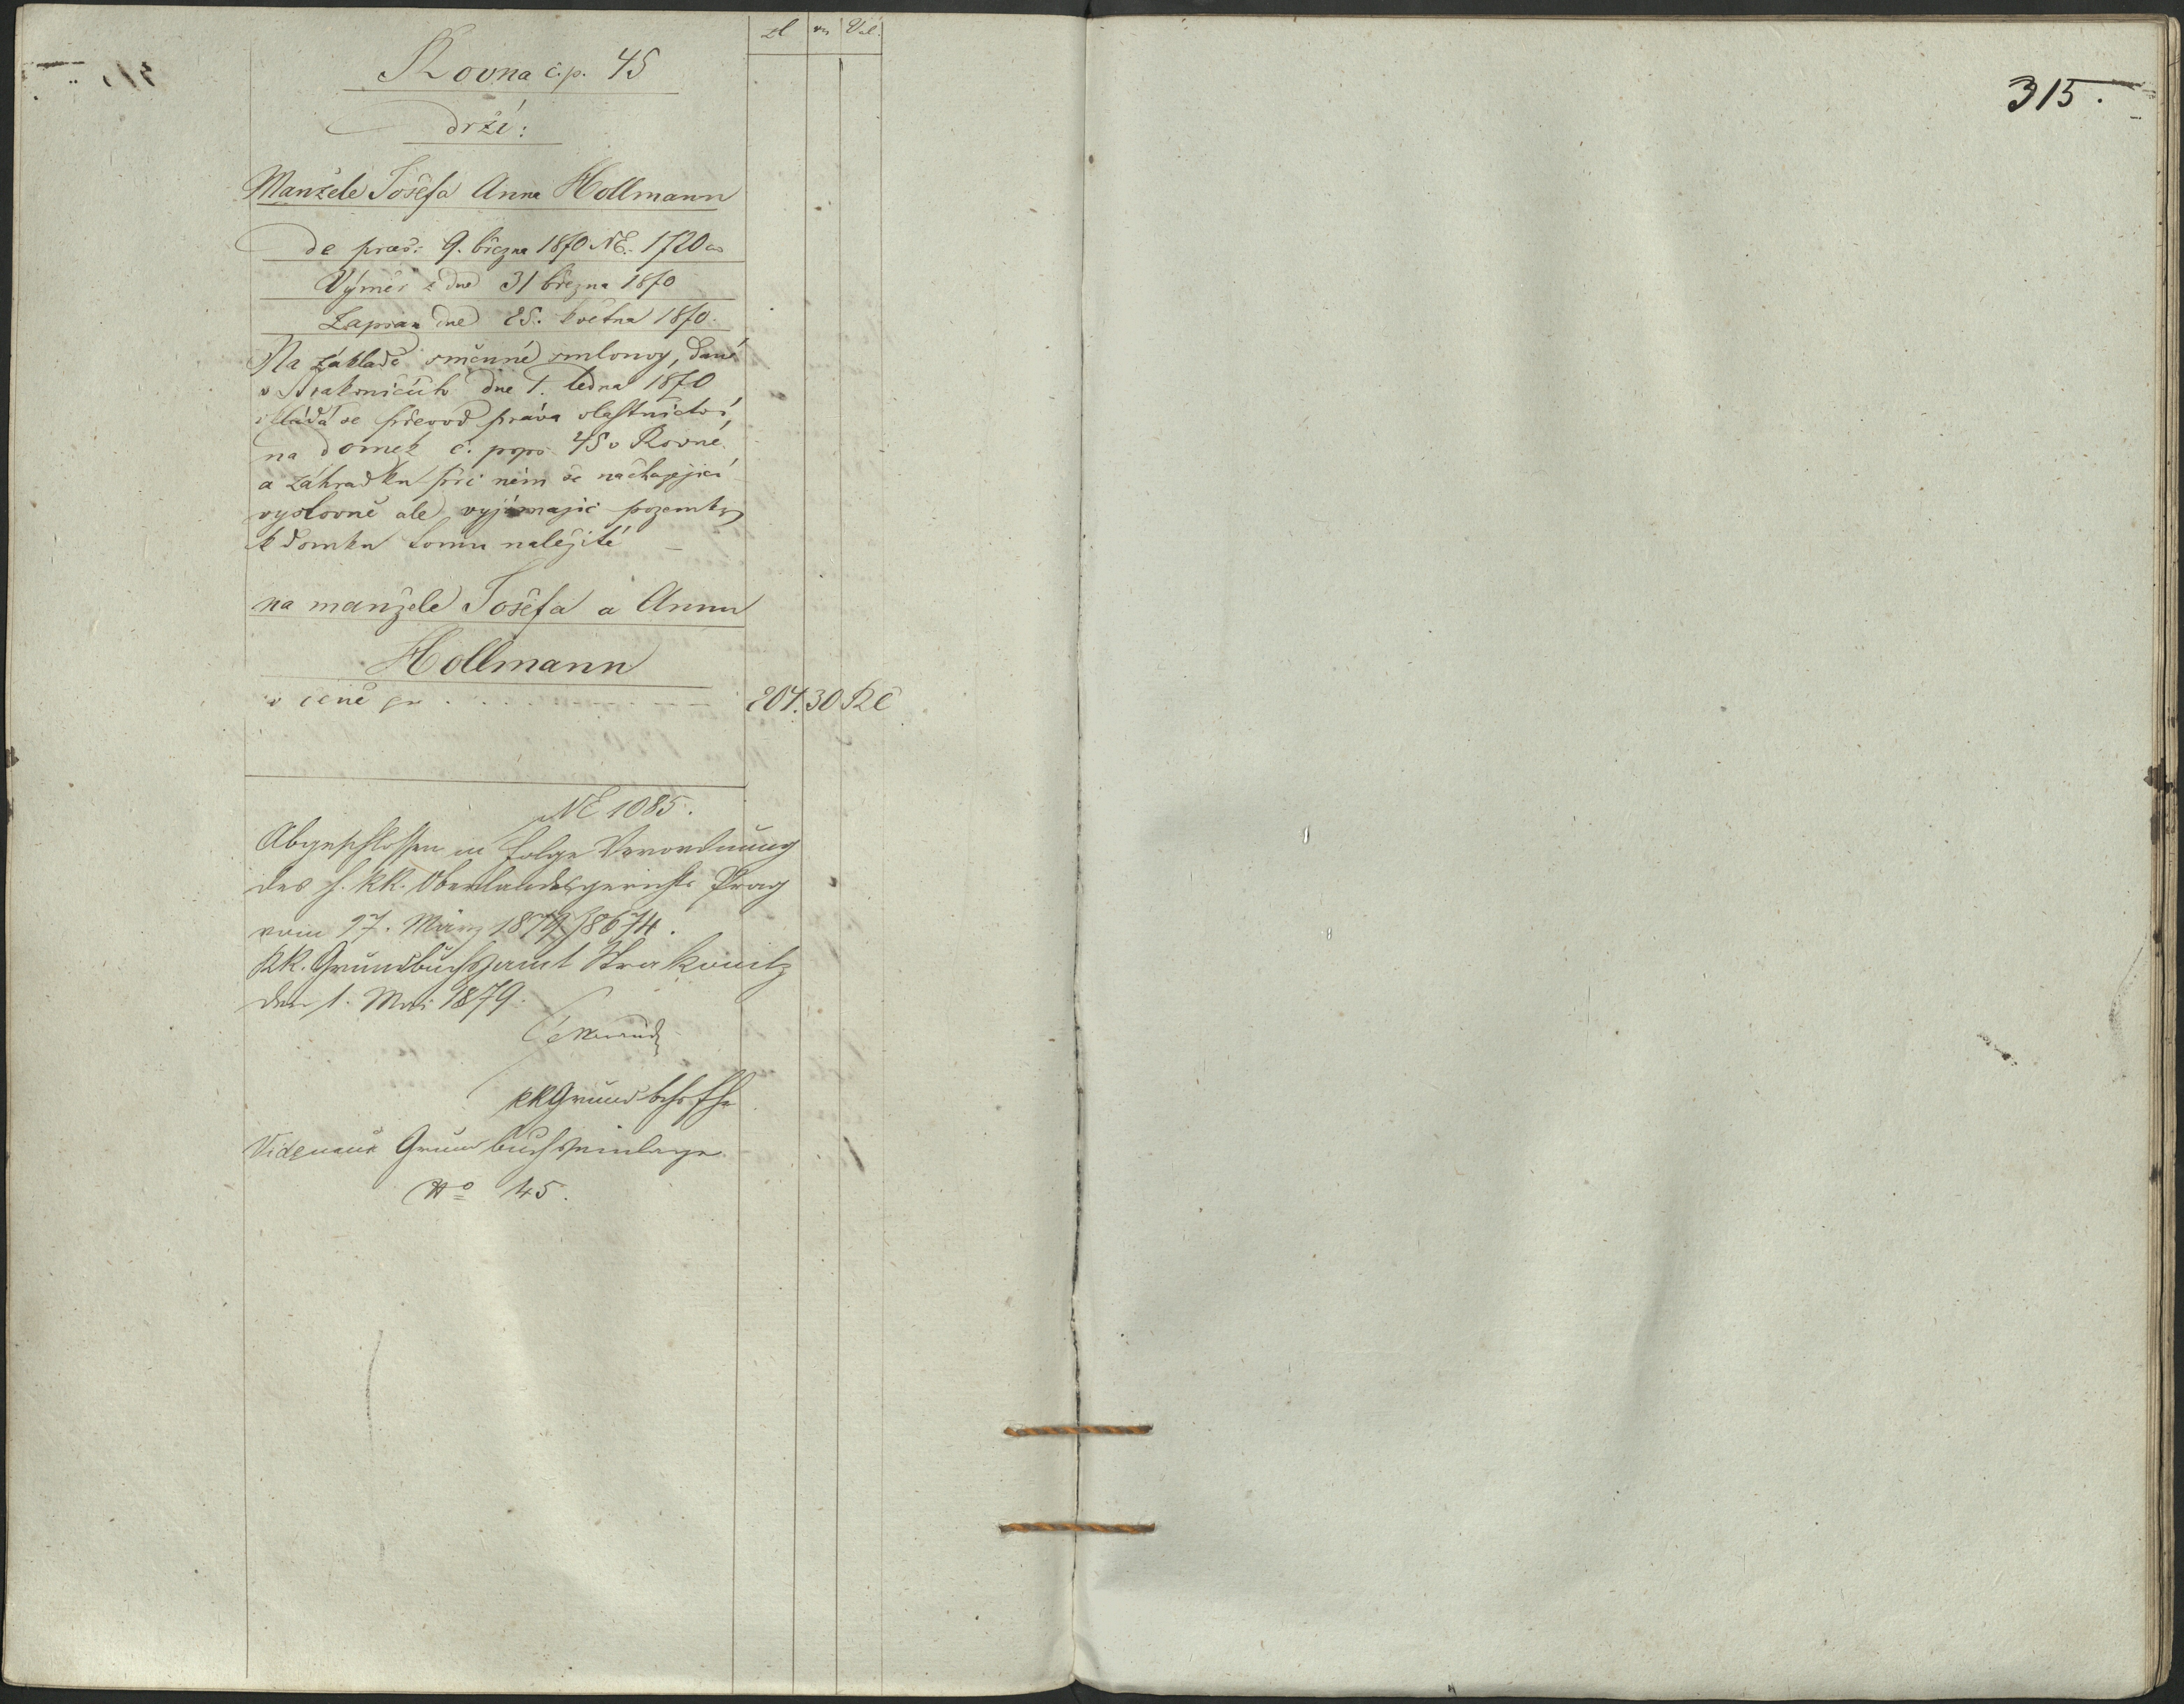 zl kr Val.
Rovna č.p. 45
drží:
Manžele Josefa Anna Hollmann
de praes: 9. března 1870 NE. 1720
Výměr z dne 31 března 1870
Zapsán dne 25. května 1870.
Na základě směnné smlouvy, dané
v Strakonicích dne 1. ledna 1870
vkládá se převod práva vlastnictví,
na domek č. pops. 45 v Rovné
a záhradku při něm se nacházející
vyslovně ale vyjímajíc pozemky
k domku tomu náležité –
na manžele Josefa a Annu
Hollmann
v ceně pr 204. 30 RČ
NE 1085.
Abgeschlossen in Folge Verordnung
des h. kk. Oberlandesgerichts Prag
vom 17. März 1879/8674.
KK. Grundbuchsamt Strakonitz
den 1. Mai 1879.
kkGrundbchsfhr
Vide neue Grundbuchseinlage
No 45.
315.